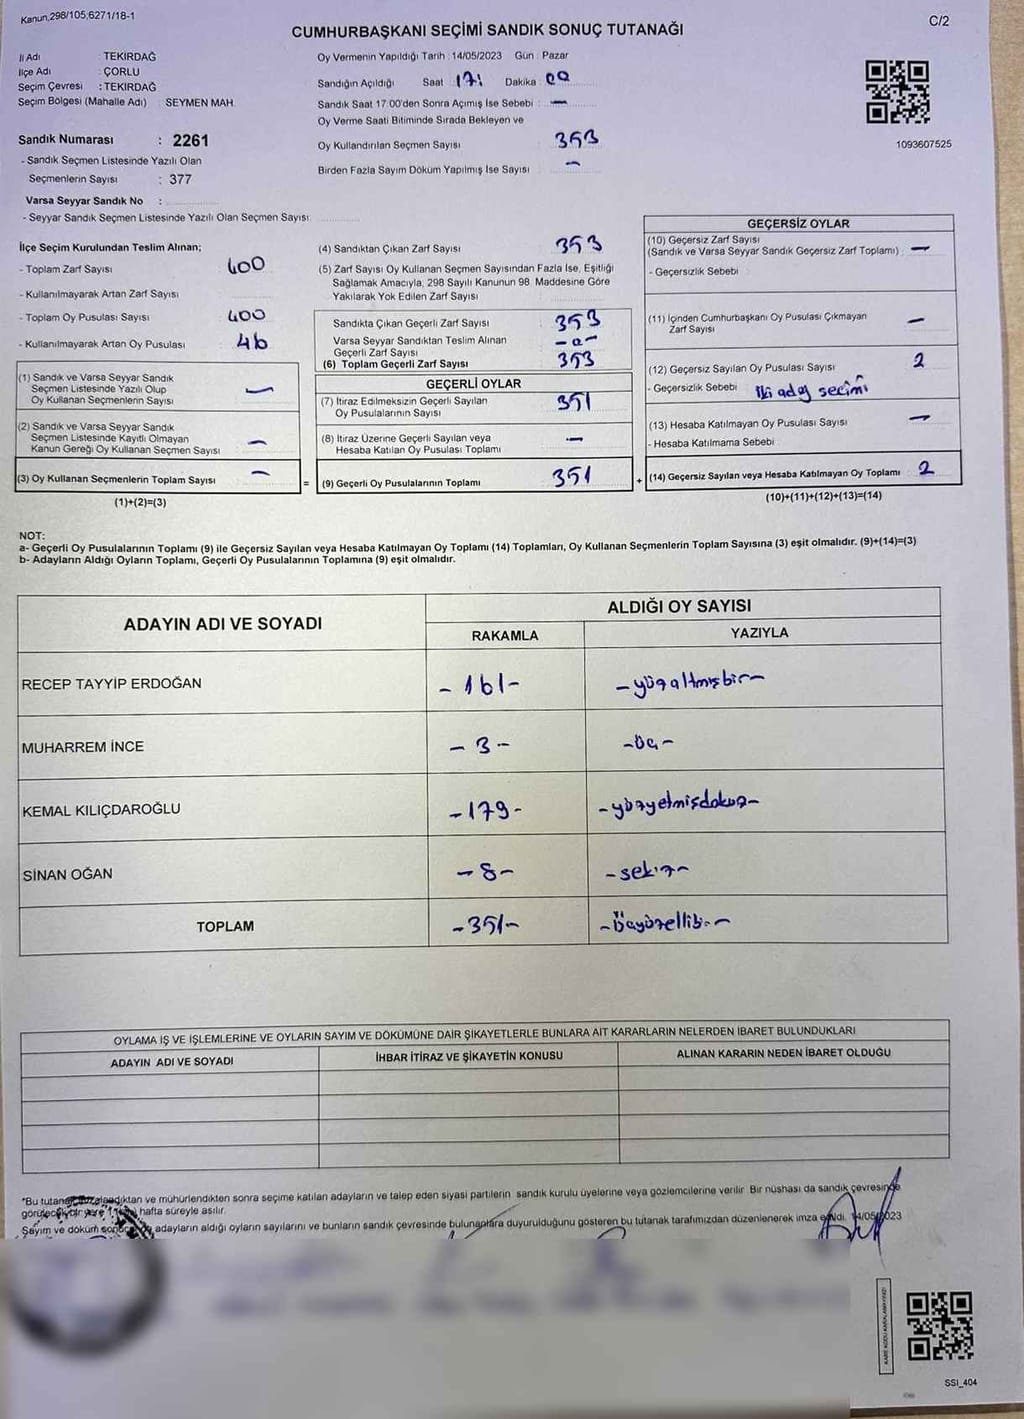 Kanun,298/105,6271/18-1
C/2
CUMHURBAŞKANI SEÇİMİ SANDIK SONUÇ TUTANAĞI
İl Adı : TEKİRDAĞ
İlçe Adı : ÇORLU
Seçim Çevresi : TEKİRDAĞ
Seçim Bölgesi (Mahalle Adı) : SEYMEN MAH.
Sandık Numarası : 2261
- Sandık Seçmen Listesinde Yazılı Olan
Seçmenlerin Sayısı : 377
Varsa Seyyar Sandık No :
- Seyyar Sandık Seçmen Listesinde Yazılı Olan Seçmen Sayısı
Oy Vermenin Yapıldığı Tarih : 14/05/2023 Gün : Pazar
Sandığın Açıldığı Saat 17: Dakika 00
Sandık Saat 17.00'den Sonra Açımış İse Sebebi : —
Oy Verme Saati Bitiminde Sırada Bekleyen ve
Oy Kullandırılan Seçmen Sayısı 353
Birden Fazla Sayım Döküm Yapılmış İse Sayısı —
1093607525
İlçe Seçim Kurulundan Teslim Alınan;
- Toplam Zarf Sayısı 400
- Kullanılmayarak Artan Zarf Sayısı
- Toplam Oy Pusulası Sayısı 400
- Kullanılmayarak Artan Oy Pusulası 46
(1) Sandık ve Varsa Seyyar Sandık
Seçmen Listesinde Yazılı Olup
Oy Kullanan Seçmenlerin Sayısı —
(2) Sandık ve Varsa Seyyar Sandık
Seçmen Listesinde Kayıtlı Olmayan
Kanun Gereği Oy Kullanan Seçmen Sayısı —
(3) Oy Kullanan Seçmenlerin Toplam Sayısı —
(1)+(2)=(3)
(4) Sandıktan Çıkan Zarf Sayısı 353
(5) Zarf Sayısı Oy Kullanan Seçmen Sayısından Fazla İse, Eşitliği
Sağlamak Amacıyla, 298 Sayılı Kanunun 98. Maddesine Göre
Yakılarak Yok Edilen Zarf Sayısı
Sandıkta Çıkan Geçerli Zarf Sayısı 353
Varsa Seyyar Sandıktan Teslim Alınan
Geçerli Zarf Sayısı -0-
(6) Toplam Geçerli Zarf Sayısı 353
GEÇERLİ OYLAR
(7) İtiraz Edilmeksizin Geçerli Sayılan
Oy Pusulalarının Sayısı 351
(8) İtiraz Üzerine Geçerli Sayılan veya
Hesaba Katılan Oy Pusulası Toplamı —
= (9) Geçerli Oy Pusulalarının Toplamı 351
GEÇERSİZ OYLAR
(10) Geçersiz Zarf Sayısı
(Sandık ve Varsa Seyyar Sandık Geçersiz Zarf Toplamı) : —
- Geçersizlik Sebebi
(11) İçinden Cumhurbaşkanı Oy Pusulası Çıkmayan
Zarf Sayısı —
(12) Geçersiz Sayılan Oy Pusulası Sayısı 2
- Geçersizlik Sebebi İki aday seçimi
(13) Hesaba Katılmayan Oy Pusulası Sayısı —
- Hesaba Katılmama Sebebi
+ (14) Geçersiz Sayılan veya Hesaba Katılmayan Oy Toplamı 2
(10)+(11)+(12)+(13)=(14)
NOT:
a- Geçerli Oy Pusulalarının Toplamı (9) ile Geçersiz Sayılan veya Hesaba Katılmayan Oy Toplamı (14) Toplamları, Oy Kullanan Seçmenlerin Toplam Sayısına (3) eşit olmalıdır. (9)+(14)=(3)
b- Adayların Aldığı Oyların Toplamı, Geçerli Oy Pusulalarının Toplamına (9) eşit olmalıdır.
ADAYIN ADI VE SOYADI
ALDIĞI OY SAYISI
RAKAMLA YAZIYLA
RECEP TAYYİP ERDOĞAN -161- -yüzaltmışbir-
MUHARREM İNCE -3- -üç-
KEMAL KILIÇDAROĞLU -179- -yüzyetmişdokuz-
SİNAN OĞAN -8- -sekiz-
TOPLAM -351- -üçyüzellibir-
OYLAMA İŞ VE İŞLEMLERİNE VE OYLARIN SAYIM VE DÖKÜMÜNE DAİR ŞİKAYETLERLE BUNLARA AİT KARARLARIN NELERDEN İBARET BULUNDUKLARI
ADAYIN ADI VE SOYADI İHBAR İTİRAZ VE ŞİKAYETİN KONUSU ALINAN KARARIN NEDEN İBARET OLDUĞU
*Bu tutanak imzalandıktan ve mühürlendikten sonra seçime katılan adayların ve talep eden siyasi partilerin sandık kurulu üyelerine veya gözlemcilerine verilir. Bir nüshası da sandık çevresinde
hafta süreyle asılır.
Sayım ve döküm adayların aldığı oyların sayılarını ve bunların sandık çevresinde bulunanlara duyurulduğunu gösteren bu tutanak tarafımızdan düzenlenerek imza edildi. 14/05/2023
KARE KODU KARALAMAYINIZ!
SSİ_404